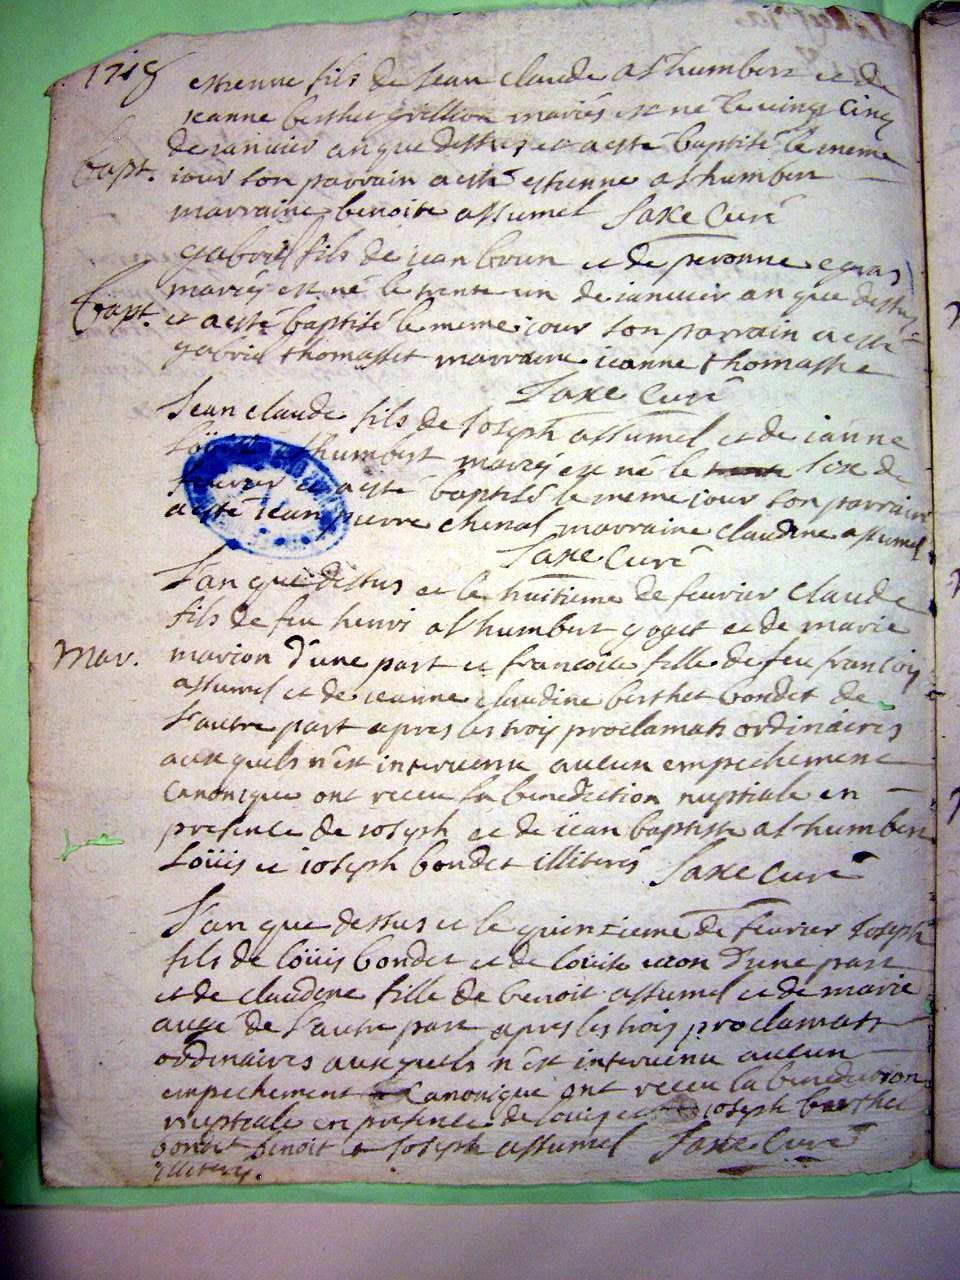 1718
estienne fils de Jean Claude althumbert et de
jeanne berthet grillion mariés est né le vingt cinq
de ianuier an que dessus et a esté baptisé le meme
bapt.
iour son parrain a esté estienne althumbert
marraine benoite assumel Saxe Curé
gabriel fils de iean brun et de peronne
mariés est né le trente un de ianuier an que dessus
bapt.
et a esté baptisé le meme iour son parrain a esté
gabriel thomasset marraine ieanne thomasset
Saxe Curé
Jean claude fils de Joseph assumel et de ianne
althumbert mariés est né le sixe de
feurier et a esté baptisé le meme iour son parrain
a esté iean pierre chenal marraine claudine assumel
Saxe Curé
L'an que dessus et le huitieme de feurier Claude
fils de feu henri althumbert goget et de marie
Mar.
marion d'une part et francoise fille de feu francois
assumel et de ieanne claudine berthet bondet de
l'autre part apres les trois proclamats ordinaires
auxquels n'est interuenu aucun empechement
canonique ont receu la benediction nuptiale en
presence de ioseph et de iean baptiste althumbert
Loüis et ioseph bondet illiterés Saxe Curé
L'an que dessus et le quinzieme de feurier Joseph
fils de loüis bondet et de louise d'une part
et de claudine fille de benoit assumel et de marie
auge de l'autre part apres les trois proclamats
ordinaires auxquels n'est interuenu aucun
empechement canonique ont receu la benediction
nuptiale en presence de louis et ioseph berthet
bondet benoit et Joseph assumel Saxe Curé
illiterés.